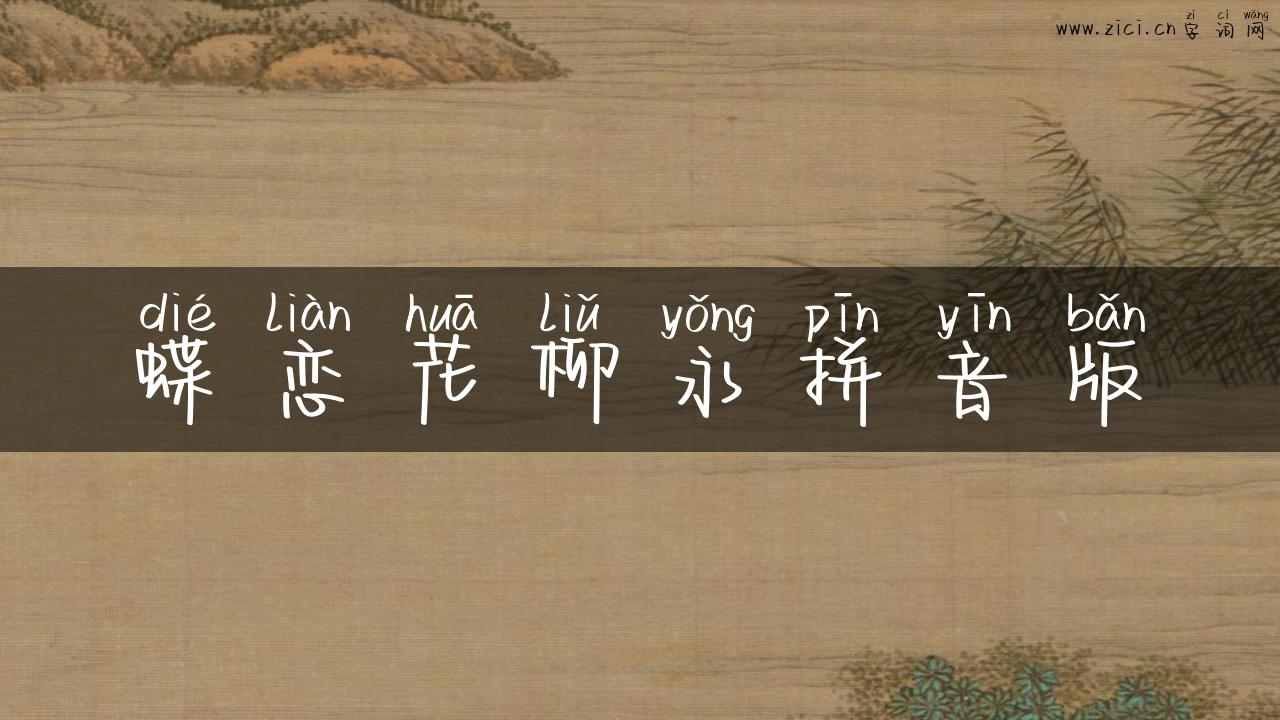 zì cí wǎng
www.zici.cn 字 词 网
dié liàn huā liǔ yǒng pīn yīn bǎn
蝶 恋 花 柳 永 拼 音 版